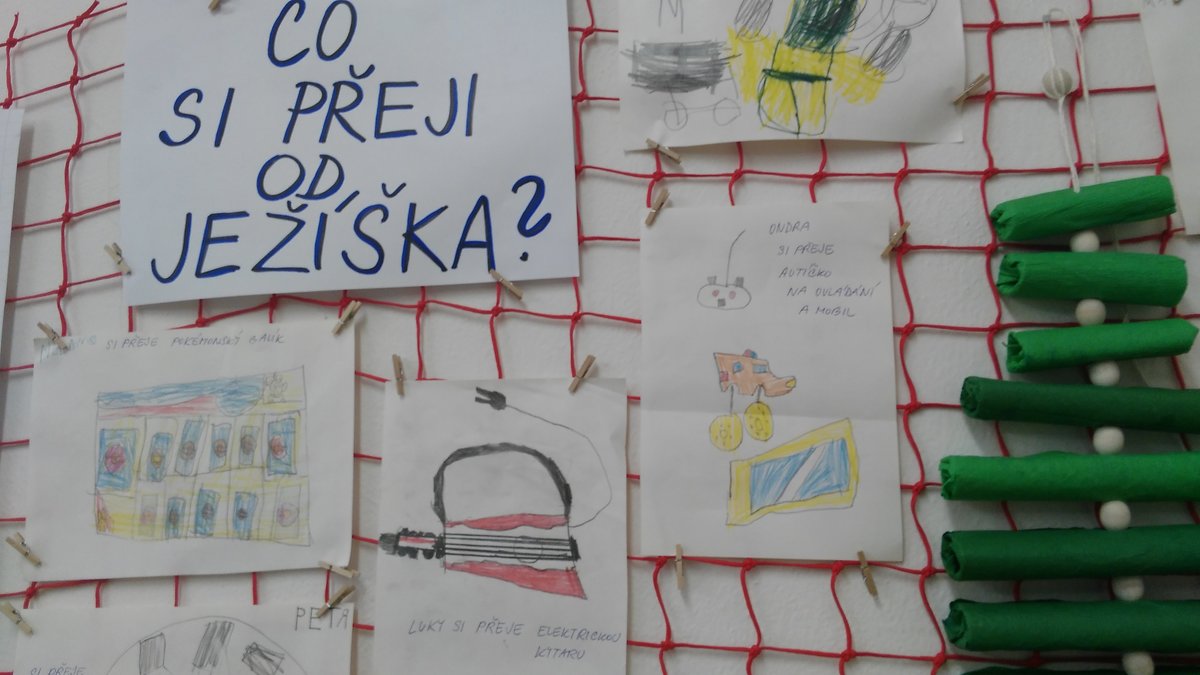 CO
SI PŘEJI
OD
JEŽÍŠKA?
M
ONDRA
SI PŘEJE
AUTÍČKO
NA OVLÁDÁNÍ
A MOBIL
SI PŘEJE POKEMONSKÝ BALÍK
LUKY SI PŘEJE ELEKTRICKOU
KYTARU
PEŤA
SI PŘEJE